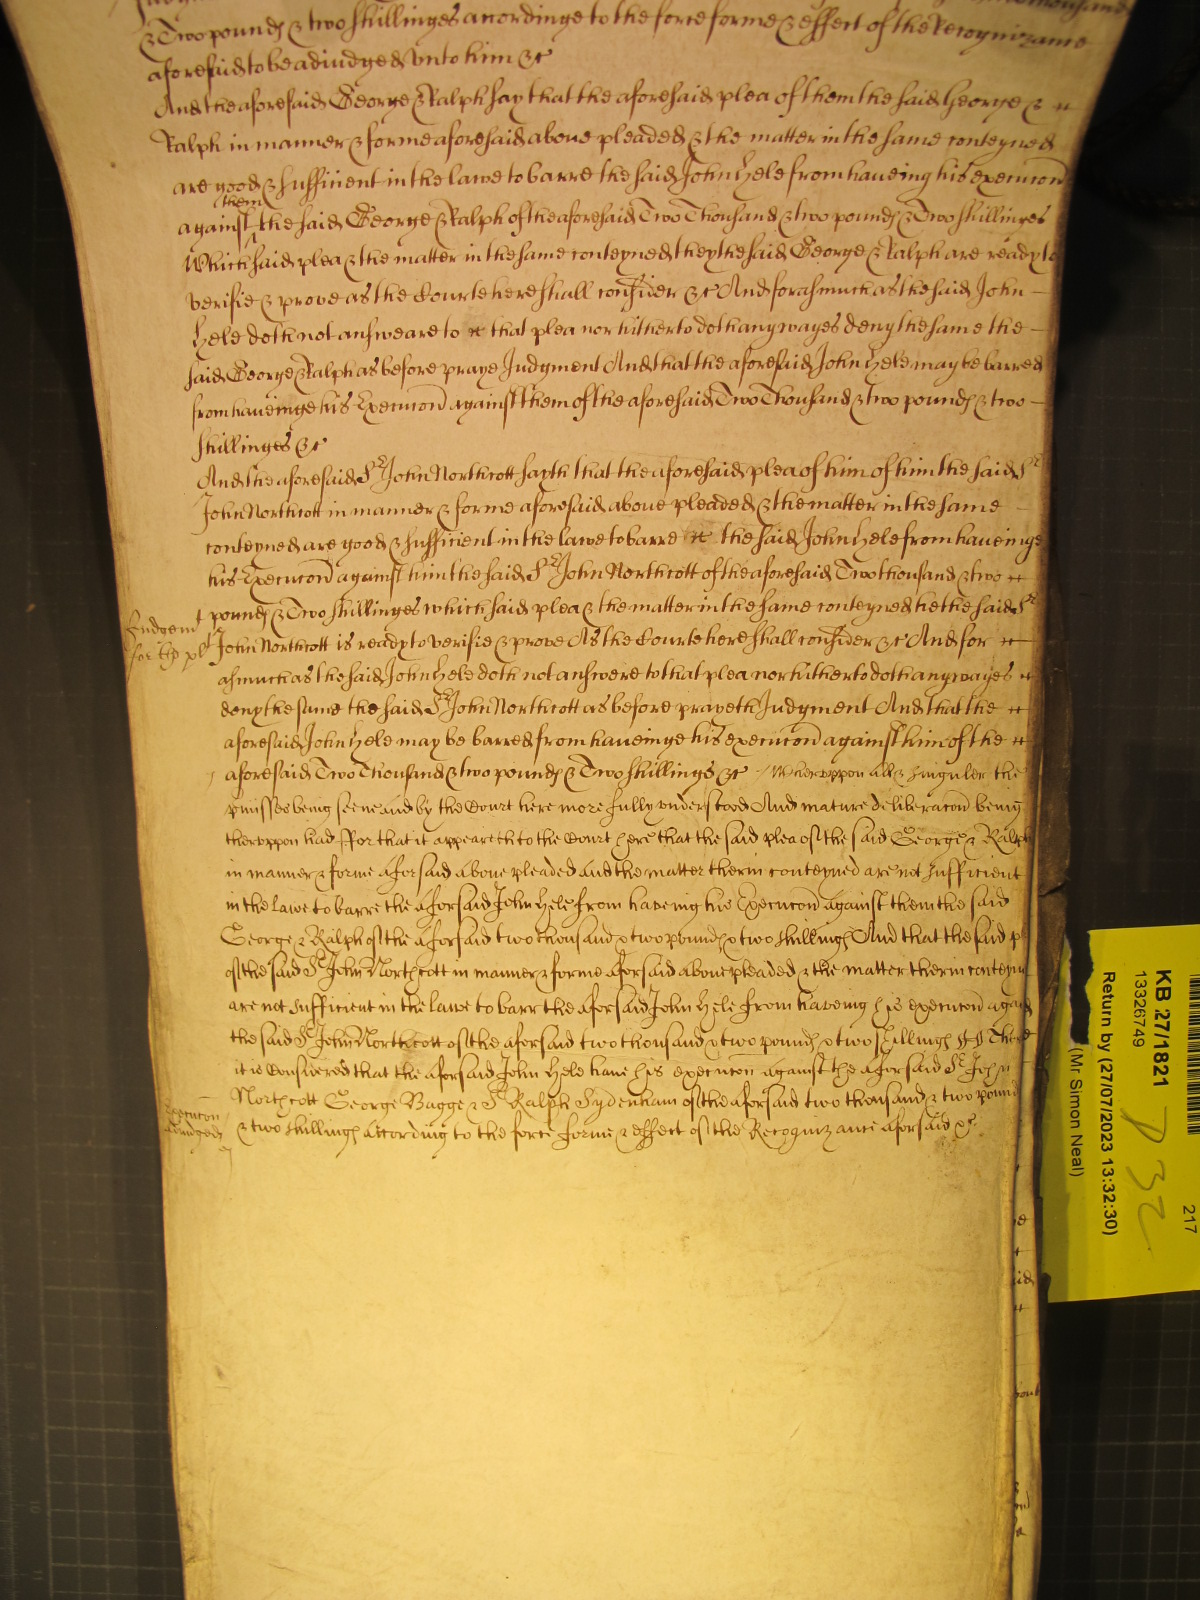 Thousand
& Two pounds & two shillinges accordinge to the force forme & effect of the Recognizance
aforesaid to be adiudged vnto him &c
And the aforesaid George & Ralph say that the aforesaid plea of them the said George &
Ralph in manner & forme aforesaid aboue pleaded & the matter in the same conteyned
are good & sufficient in the lawe to barre the said John Hele from haueing his execucon
them
against the said George & Ralph of the aforesaid Two Thousand & two pounds & Two shillinges
Which said plea & the matter in the same conteyned they the said George & Ralph are ready to
verifie & prove as the Courte here shall consider &c And forasmuch as the said John
Hele doth not answeare to that plea nor hitherto doth any wayes deny the same the
said George & Ralph as before praye Judgment And that the aforesaid John Hele may be barred
from haueinge his Execucon against them of the aforesaid Two Thousand & two pounds & two
shillinges &c
And the aforesaid Sr John Northcott sayth that the aforesaid plea of him of him the said Sr
John Northcott in manner & forme aforesaid aboue pleaded & the matter in the same
conteyned are good & sufficient in the lawe to barre the said John Hele from haueinge
his Execucon against him the said Sr John Northcott of the aforesaid Two thousand & two
pounds & Two shillinges which said plea & the matter in the same conteyned he the said Sr
Judgemt
for the pl
John Northcott is ready to verifie & prove As the Courte here shall consider &c And for
asmuch as the said John Hele doth not answere to that plea nor hitherto doth any wayes
deny the same the said Sr John Northcott as before prayeth Judgment And that the
aforesaid John Hele may be barred from haueinge his execucon against him of the
aforesaid Two Thousand & two pounds & Two shillings &c Whervppon all & singuler the
pmisses being seene and by the Court here more fully vnderstood And mature deliberacon being
thervppon had For that it appeareth to the Court here that the said plea of the said George & Ralph
in manner & forme aforsaid aboue pleaded and the matter therin conteyned are not sufficient
in the lawe to barre the aforsaid John Hele from haveing his Execucon against them the said
George & Ralph of the aforsaid two thousand & two pounds & two shillings And that the said p
of the said Sr John Northcott in manner & forme aforsaid aboue pleaded & the matter therin conteyn
are not sufficient in the lawe to barr the aforsaid John Hele from haveing his execucon again
the said Sr John Northcott of the aforsaid two thousand & two pounds & two shillings
it is Considered that the aforsaid John Hele haue his execucon against the aforsaid Sr John
Northcott George Bagge & Sr Ralph Sydenham of the aforsaid two thousand & two pounds
Execucon
adiudged
& two shillings according to the force forme & effect of the Recognizance aforsaid &c
KB 27/1821
13326749
Return by (27/07/2023 13:32:30)
(Mr Simon Neal)
217